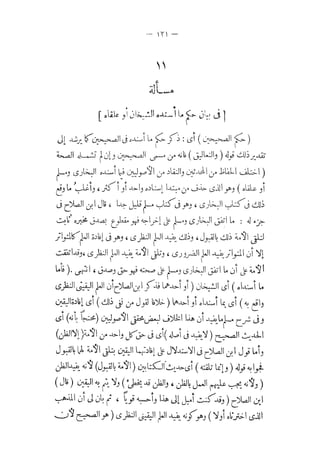 — ١٢١ —
١١
مسألة
[ فى بيان حكم ما أسنده الشيخان أو علقاه ]
( حكم الصحيحين ) أى : ذكر حكم ما أسنده فى الصحيحين كما يرشد إلى
تقدير ذلك قوله ( والتعاليق ) فانه من مسمى الصحيحين وإن لم تشمله الصحة
( اختلف الحفاظ من المحدثين والنقاد من الأصوليين فيما أسنده البخارى ومسلم
أو علقاه ) وهو الذى حذف من مبتدا إسناده واحد أو أكثر ، وأغلب ما وقع
ذلك فى كتاب البخارى ، وهو فى كتاب مسلم قليل جدا ، قال ابن الصلاح فى
جزء له : ما اتفق البخارى ومسلم على إخراجه فهو مقطوع بصدق مخبره ثابت
لتلقى الأمة ذلك بالقبول ، وذلك يفيد العلم النظرى ، وهو فى إفادة العلم كالمتواتر
إلا أن المتواتر يفيد العلم الضرورى ، وتلقى الأمة يفيد العلم النظرى ، وقد اتفقت
الأمة على أن ما اتفق البخارى ومسلم على صحته فهو حق وصدق ، انتهى . (فأما
ما أسنداه ) أى الشيخان ( أو أحدهما فذكر ابن الصلاح أن العلم اليقينى النظرى
واقع به ) أى بما أسنداه أو أحدهما ( خلافا لقول من نفى ذلك ) أى إفادة اليقين
وفى شرح مسلم ما يفيد أن هذا الخلاف لبعض محققى الأصوليين (محتجاً بأنه) أى
الحديث الصحيح (لايفيد فى أصله) أى فى حق كل واحد من الأمة (إلا الظن)
وأما قول ابن الصلاح فى الاستدلال على إفادتهما اليقين بتلقى الأمة لهما بالقبول
فجوابه قوله (وإنما تلقته) أى حديث الكتابين (الأمة بالقبول) لأنه يفيد الظن
(ولأنه يجب عليهم العمل بالظن ، والظن قد يخطئ) ولا يتم به اليقين ( قال )
ابن الصلاح ( وقد كنت أميل إلى هذا وأحسبه قوياً ، ثم بان لى أن المذهب
الذى اخترناه أولا ) وهو كونه يفيد العلم اليقينى النظرى ( هو الصحيح لأن